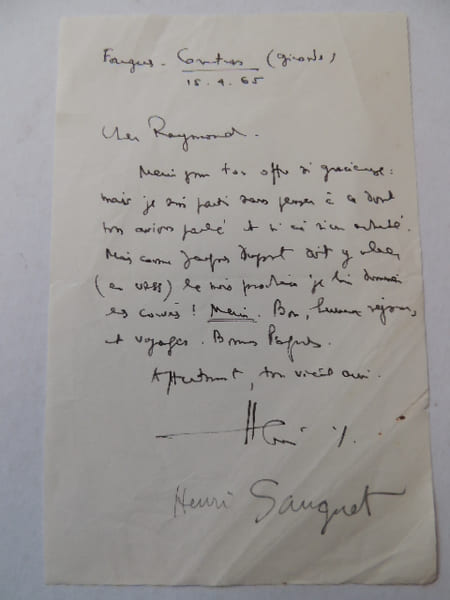 (Gironde)
15.4.65
Cher Raymond.
Merci pour ton offre si gracieuse:
mais je suis parti sans penser à ce dont
nous avions parlé et n'ai rien acheté.
Mais comme Jacques Dupont doit y aller
(en URSS) le mois prochain je lui donnerai
Merci. Bon, heureux séjour,
et voyages. Bonnes Pâques.
Affectueusement, ton vieil ami.
Henri
Henri Sauguet